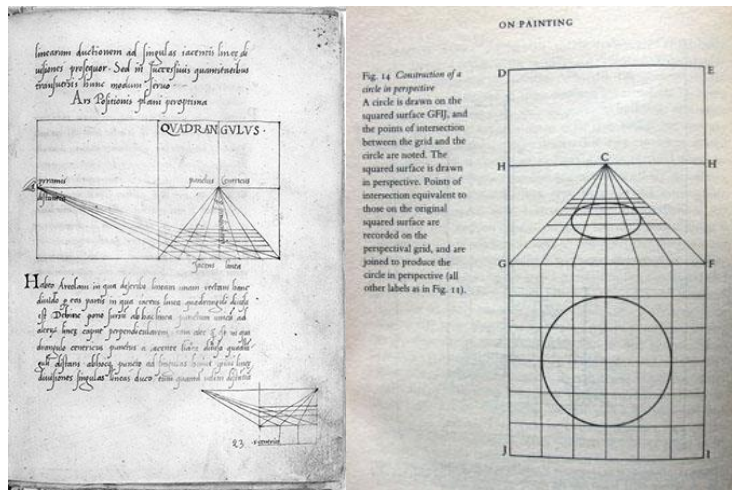 linearum ductionem ad singulas iacentis lineę di
uisiones prosequor. Sed in successiuis quantitatibus
transuersis hunc modum seruo.
Ars Positionis plani peroptima
QVADRANGVLVS.
pyramis
distantia
punctus centricus
iacens linea
Habeo Areolam in qua describo lineam unam rectam hanc
diuido eas partis in qua iacens linea quadranguli diuisa
est Dehinc pono sursum ab hac linea punctum unicum ad
alterum lineę caput perpendicularem
drangulo centricus punctus a iacente linea
distans ab hoc puncto ad singulas huius ipsius lineę
diuisiones singulas lineas duco tum quantum uelim distantia
23.
ON PAINTING
Fig. 14 Construction of a
circle in perspective
A circle is drawn on the
squared surface GFIJ, and
the points of intersection
between the grid and the
circle are noted. The
squared surface is drawn
in perspective. Points of
intersection equivalent to
those on the original
squared surface are
recorded on the
perspectival grid, and are
joined to produce the
circle in perspective (all
other labels as in Fig. 11).
D
E
H
C
H
G
F
J
I